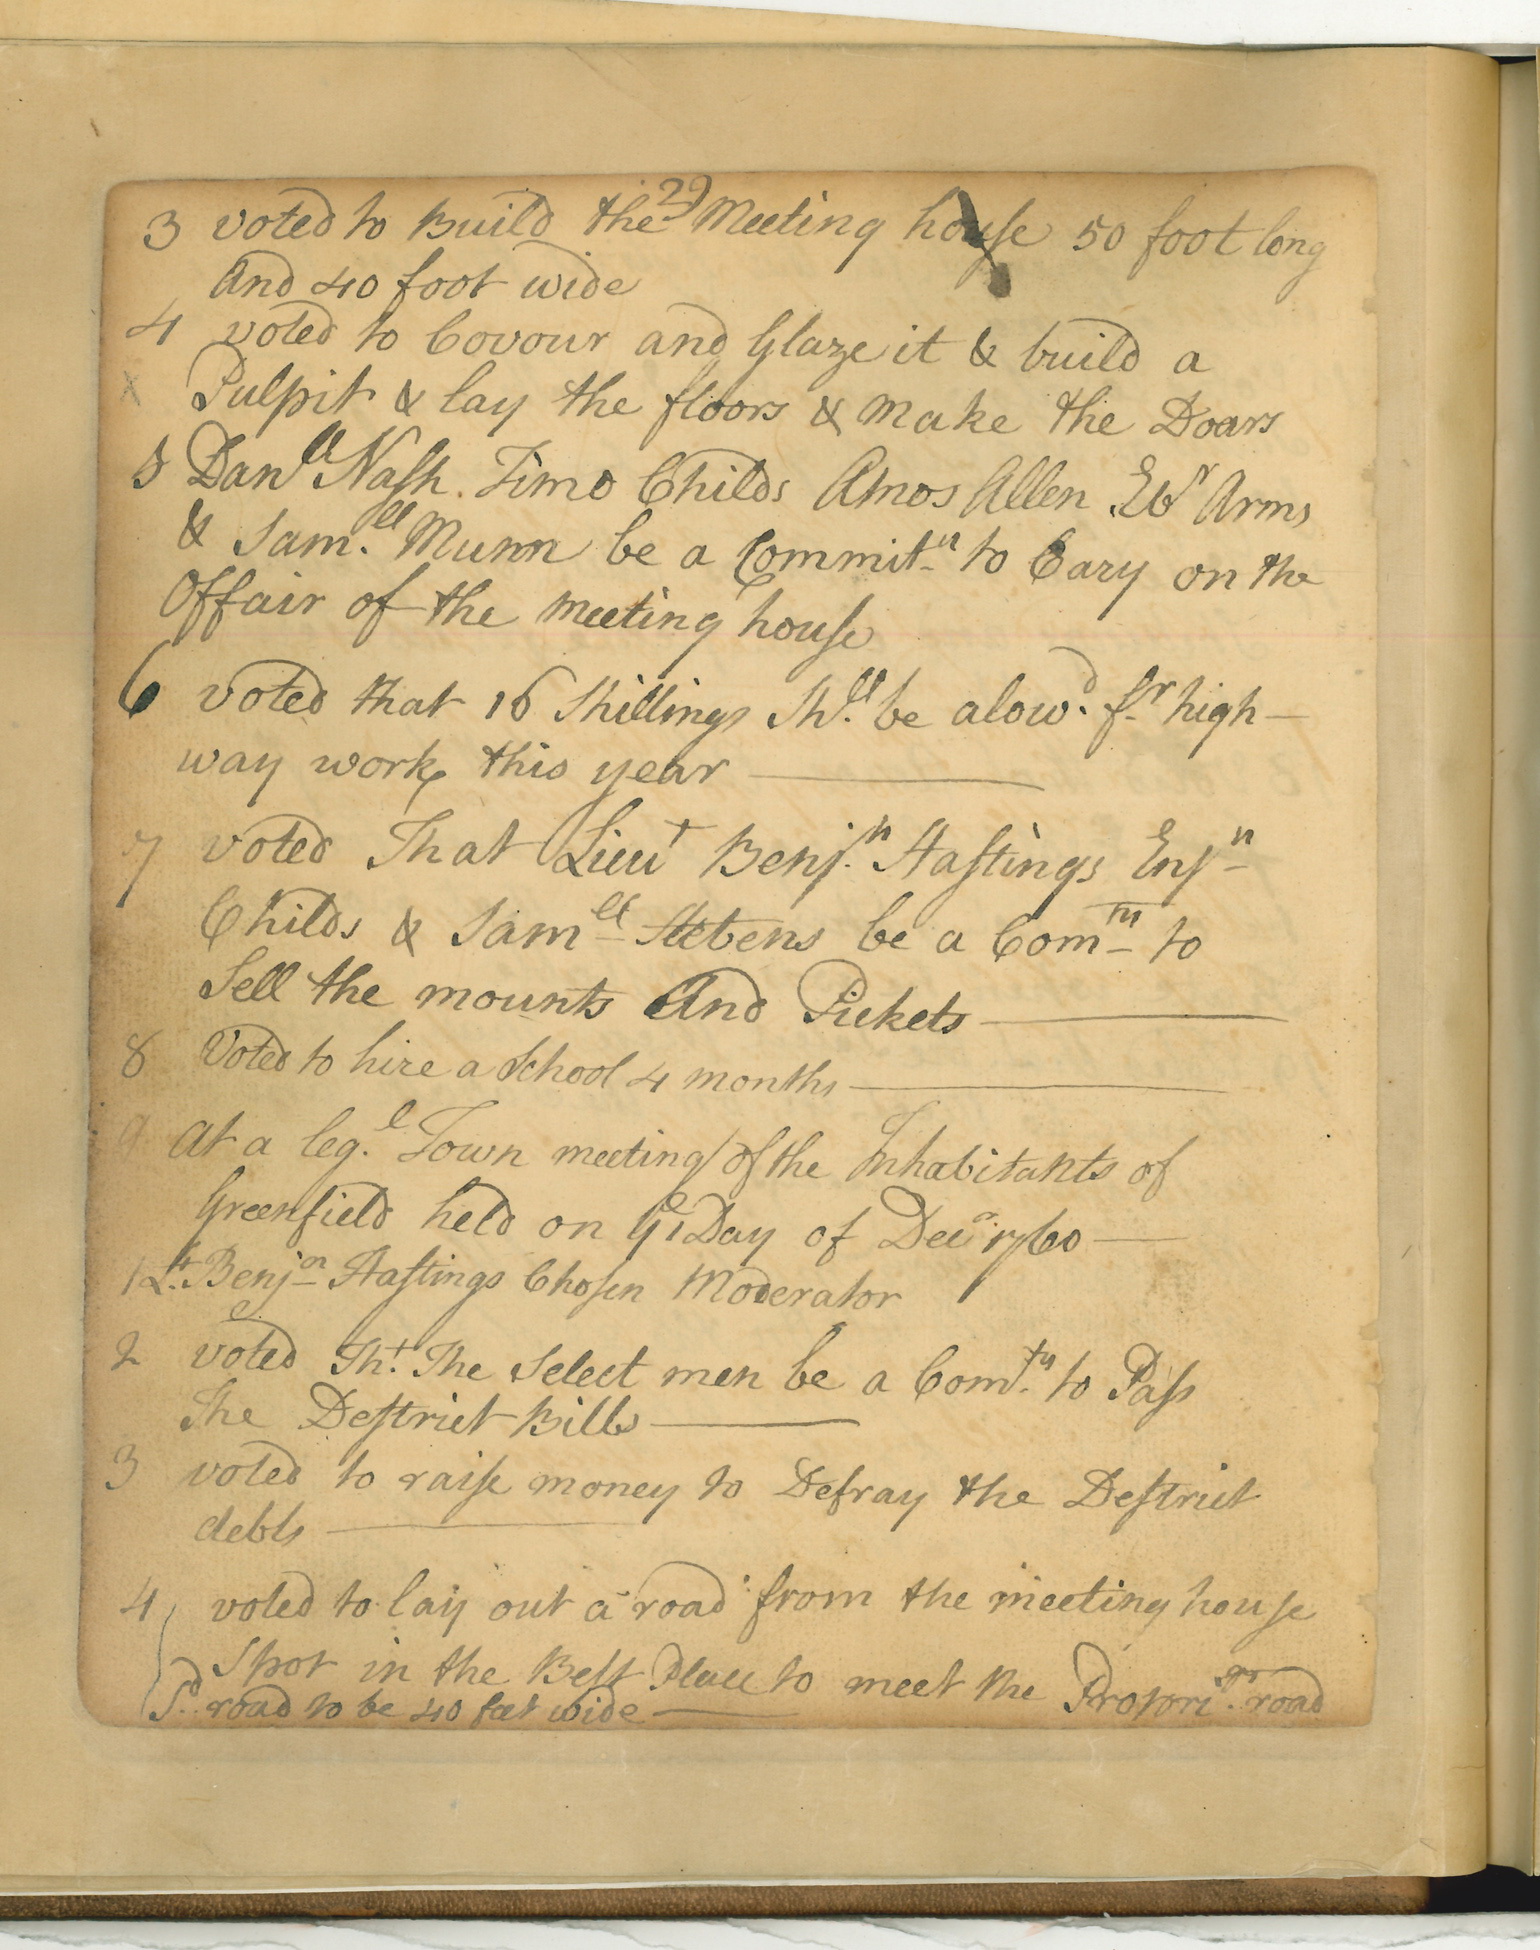 29
3 voted to Build the Meeting house 50 foot long
And 40 foot wide
4 voted to Covour and Glaze it & build a
x Pulpit & lay the floors & make the Doars
5 Danll Nash. Timo Childs Amos Allen Ebr Arms
& Sam.ll Munn be a Committ to Cary on the
Offair of the meeting house
6 voted that 16 Shillings Sh.ll be alow.d fr high
way work this year
7 voted That Lieut Benj.n Hastings Ensn
Childs & Samll Stebens be a Comtt to
Sell the mounts And Pickets
8 Voted to hire a School 4 months
9 At a leg.l Town meeting of the Inhabitants of
Greenfield held on ye 1 Day of Decr 1760
1 Lt. Benjn Hastings Chosen Moderator
2 voted Tht. The Select men be a Com.tt to Pass
The Destrict Bills
3 voted to raise money to Defray the Destrict
debts
4 voted to lay out a road from the meeting house
Spot in the Best Place to meet the Propri.rs road
S.d road to be 40 feet wide